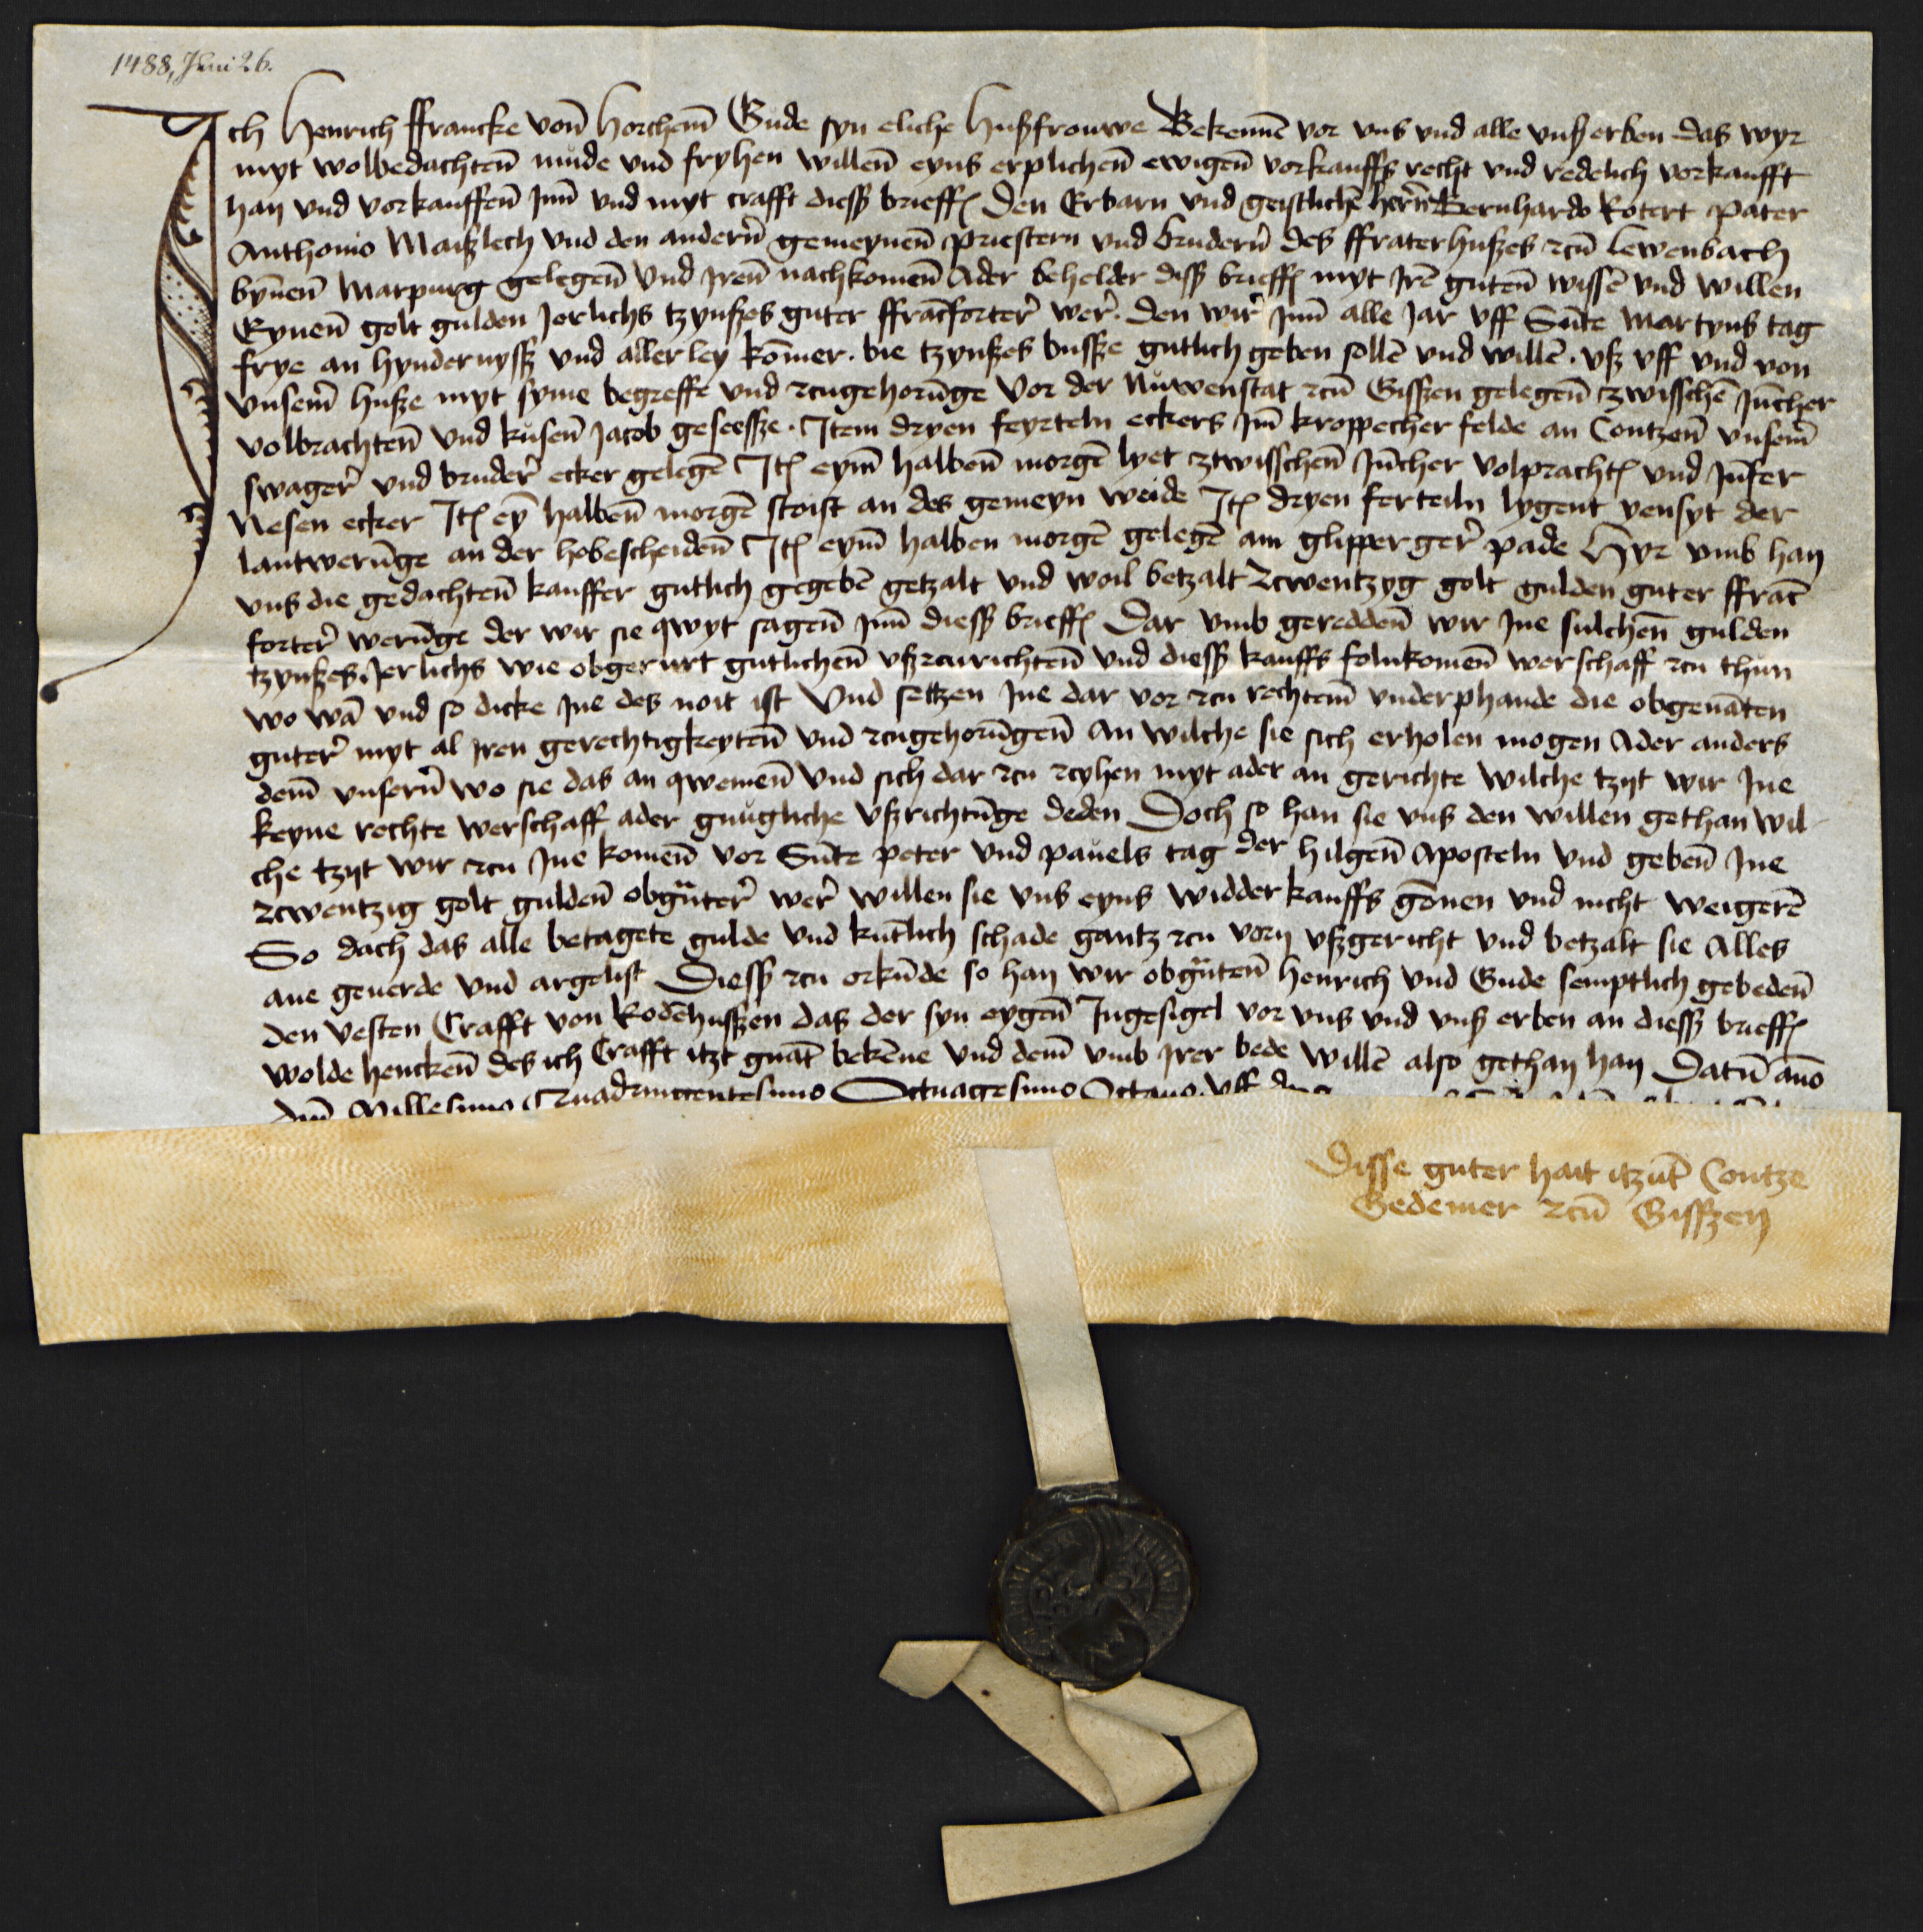 1488, Juni 26.
Ich Henrich ffrancke von̄ horchem̄ Gude syn eliche hußfrouwe Bekenne͞ vor vns vnd alle vnß erben das wyr
myt wolbedachten̄ mude vnd fryhen willen̄ eyns erplichen̄ ewigen̄ vorkauffs recht vnd redelich vorkaufft
han vnd vorkauffen̄ Jnn̄ vnd myt crafft diess brieffs Den Erbarn vnd geistlichē herrn̄ Bernhardo Rotert Pater
Anthonio Maißlech vnd den andern̄ gemeynen̄ Priestern vnd brudern̄ des ffraterhußes zcū Lewenbach
bynnen̄ Marpurg gelegen̄ vnd Jren̄ nachkomen̄ Ader behelder diss brieffs myt Jrē guten̄ wissē vnd willen
Eynen̄ golt gulden Jerlichs tzynßes guter ffrācforter wer. den wir Jnn̄ alle Jar vff Sūte Martyns tag
frye an hyndernyß vnd allerley kōmer. die tzynßes busse gutlich geben sollē vnd willē. vß vff vnd von
vnserm̄ huße myt syme begreffe vnd zcugehorūge vor der Nuwenstat zcū Gissen gelegen̄ zwisschē Jūcher
volbrachten̄ vnd kusen̄ Jacob geseesse. Item dryen feyrteln eckers Jm̄ kroppecher felde an Contzen̄ vnserm̄
swager vnd bruder ecker gelegē Jtē eym̄ halben̄ morgē lyet ztwisschen̄ Jūcher volprachtē vnd Jūfer
Nesen ecker Jtē ey͞ halben̄ morgē stoist an des gemeyn weide Jtē dryen ferteiln lygent yensyt der
lantwerūge an der hobescheiden̄ Jtē eym̄ halben morgē gelegē am glipperger pade Hyr vmb han
vns die gedachten̄ kauffer gutlich gegebē getzalt vnd woil betzalt zcwentzyg golt gulden guter ffrāc
forter werūge der wir sie qwyt sagen̄ Jnn̄ diess brieffs Dar vmb geredden̄ wir Jne sulchen̄ gulden
tzynßes Jerlichs wie obgerurt gutlichen̄ vßzcurichten̄ vnd diess kauffs folnkomen̄ werschaff zcu thun
wo wā vnd so dicke Jne des noit ist Vnd settzen Jne dar vor zcu rechtem̄ vnderphande die obgenāten
guter myt al Jren gerechtigkeyten̄ vnd zcugehorūgen̄ An wilche sie sich erholen mogen Ader anders
dem̄ vnsern̄ wo sie das an qwemen̄ vnd sich dar zcu zcyhen myt ader an gerichte wilche tzyt wir Jne
keyne rechte werschaff ader gnugliche vßrichtūge deden Doch so han sie vns den willen gethan wil
che tzyt wir zcu Jne komen̄ vor Sūte Peter vnd Pauels tag der hilgen̄ Aposteln vnd geben̄ Jne
zcwentzig golt gulden̄ obgūter wer willen sie vns eyns widderkauffs gōnen vnd nicht weigerē
So dach das alle betagete gulde vnd kūtlich schade gantz zcu vorn vßgericht vnd betzalt sie Alles
ane geuerde vnd argelist Diess zcu orkūde so han wir obgūten̄ Henrich vnd Gude semptlich gebeden̄
den vesten Crafft von Rodēhussen das der syn eygen̄ Jngesigel vor vns vnd vnß erben an diess brieffs
wolde hencken̄ des ich Crafft itzt gnāt bekēne vnd dem̄ vmb Jrer bede willē also gethan han Datū añō
dn̄i Millesimo Quadringentesimo Octuagesimo Octauo. vff
Disse guter hait itzūt Contze
Gedemer zcū Gissen